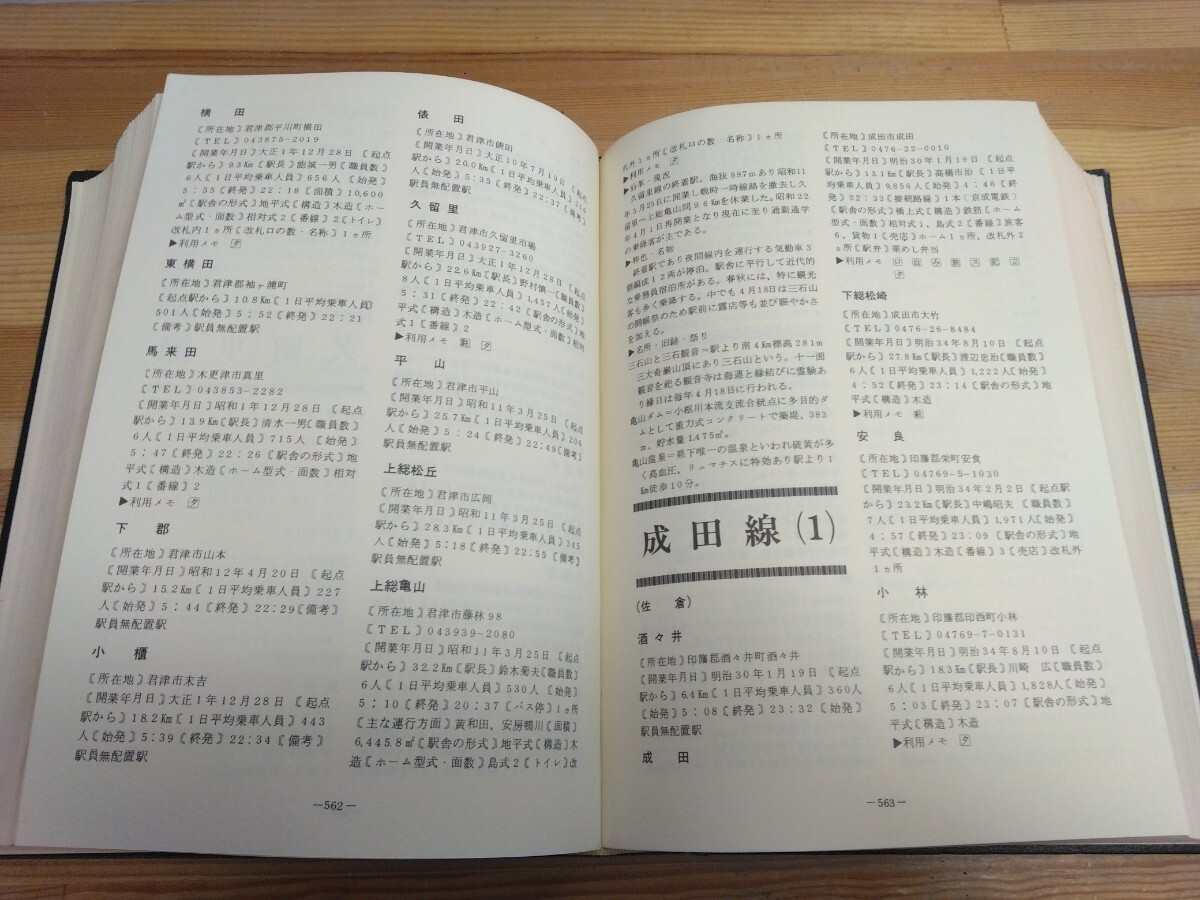 横田
〔所在地〕君津郡平川町横田
〔TEL〕043875-2019
〔開業年月日〕大正1年12月28日〔起点
駅から〕9.3Km〔駅長〕能城一男〔職員数〕
6人〔1日平均乗車人員〕656人〔始発〕
5：55〔終発〕22：18〔面積〕10,600
㎡〔駅舎の形式〕地平式〔構造〕木造〔ホー
ム型式・面数〕相対式2〔番線〕2〔トイレ〕
改札内1ヵ所〔改札口の数・名称〕1ヵ所
▶利用メモ タ
東横田
〔所在地〕君津郡袖ヶ浦町
〔起点駅から〕10.8Km〔1日平均乗車人員〕
501人〔始発〕5：52〔終発〕22：21
〔備考〕駅員無配置駅
馬来田
〔所在地〕木更津市真里
〔TEL〕043853-2282
〔開業年月日〕昭和1年12月28日〔起点
駅から〕13.9Km〔駅長〕清水一男〔職員数〕
6人〔1日平均乗車人員〕715人〔始発〕
5：47〔終発〕22：26〔駅舎の形式〕地
平式〔構造〕木造〔ホーム型式・面数〕相対
式1〔番線〕2
▶利用メモ タ
下郡
〔所在地〕君津市山本
〔開業年月日〕昭和12年4月20日〔起点
駅から〕15.2Km〔1日平均乗車人員〕227
人〔始発〕5：44〔終発〕22：29〔備考〕
駅員無配置駅
小櫃
〔所在地〕君津市末吉
〔開業年月日〕大正1年12月28日〔起点
駅から〕18.2Km〔1日平均乗車人員〕443
人〔始発〕5：39〔終発〕22：34〔備考〕
駅員無配置駅
俵田
〔所在地〕君津市俵田
〔開業年月日〕大正10年7月10日〔起点
駅から〕20.0Km〔1日平均乗車人員〕216
人〔始発〕5：35〔終発〕22：37〔備考〕
駅員無配置駅
久留里
〔所在地〕君津市久留里市場
〔TEL〕043927-3260
〔開業年月日〕大正1年12月28日〔起点
駅から〕22.6Km〔駅長〕野村慎一〔職員数〕
8人〔1日平均乗車人員〕1,457人〔始発〕
5：31〔終発〕22：42〔駅舎の形式〕地
平式〔構造〕木造〔ホーム型式・面数〕相対
式1〔番線〕2
▶利用メモ タ
平山
〔所在地〕君津市平山
〔開業年月日〕昭和11年3月25日〔起点
駅から〕25.7Km〔1日平均乗車人員〕204
人〔始発〕5：24〔終発〕22：49〔備考〕
駅員無配置駅
上総松丘
〔所在地〕君津市広岡
〔開業年月日〕昭和11年3月25日〔起点
駅から〕28.3Km〔1日平均乗車人員〕345
人〔始発〕5：18〔終発〕22：55〔備考〕
駅員無配置駅
上総亀山
〔所在地〕君津市藤林98
〔TEL〕043939-2080
〔開業年月日〕昭和11年3月25日〔起点
駅から〕32.2Km〔駅長〕鈴木菊夫〔職員数〕
6人〔1日平均乗車人員〕530人〔始発〕
5：10〔終発〕20：37〔バス停〕1ヵ所
〔主な運行方面〕黄和田、安房鴨川〔面積〕
6,445.8㎡〔駅舎の形式〕地平式〔構造〕木
造〔ホーム型式・面数〕島式2〔トイレ〕改
—562—
札外1ヵ所〔改札口の数・名称〕1ヵ所
▶利用メモ タ
▶沿革・現況
久留里線の終着駅。海抜99.7mあり昭和11
年3月25日に開業し戦時一時線路を撤去し久
留里〜上総亀山間9.6Kmを休業した。昭和22
年4月1日再開業となり現在に至り通勤通学
の乗降客が主である。
▶特色・名物
終着駅であり夜間線内を運行する気動車3
個編成12両が停泊。駅舎に平行して近代的
な乗務員宿泊所がある。春秋には、特に観光
客も多く乗降する。中でも4月18日は三石山
の開帳祭のため駅前に露店等も並び賑やかさ
を加える。
▶名所・旧跡・祭り
三石山と三石観音＝駅より南4Km標高281m
三大奇巌山頂にあり三石山という。十一面
観音を祀る観音寺は海運と縁結びに霊験あ
り縁日は毎年4月18日に行われる。
亀山ダム＝小柩川本流支流合統点に多目的ダ
ムとして重力式コンクリートで築堤、383
m、貯水量1.475㎡。
亀山温泉＝県下唯一の温泉といわれ硫黄が多
く高血圧、リュマチスに特効あり駅より1
Km徒歩10分。
成田線(1)
(佐倉)
酒々井
〔所在地〕印旛郡酒々井町酒々井
〔開業年月日〕明治30年1月19日〔起点
駅から〕6.4Km〔1日平均乗車人員〕360人
〔始発〕5：08〔終発〕23：32〔始発〕
駅員無配置駅
成田
〔所在地〕成田市成田
〔TEL〕0476-22-0010
〔開業年月日〕明治30年1月19日〔起点
駅から〕13.1Km〔駅長〕高橋市治〔1日平
均乗車人員〕9,856人〔始発〕4：46〔終
発〕22：33〔接続路線〕1本（京成電鉄）
〔駅舎の形式〕橋上式〔構造〕鉄筋〔ホーム
型式・面数〕相対式1、島式2〔番線〕旅客
6、貨物1〔売店〕ホーム1ヵ所、改札外2
ヵ所〔駅弁〕栗めし弁当
▶利用メモ
下総松崎
〔所在地〕成田市大竹
〔TEL〕0476-26-8484
〔開業年月日〕明治34年8月10日〔起点
駅から〕27.8Km〔駅長〕渡辺忠治〔職員数〕
6人〔1日平均乗車人員〕1,222人〔始発〕
4：52〔終発〕23：14〔駅舎の形式〕地
平式〔構造〕木造
▶利用メモ
安良
〔所在地〕印旛郡栄町安食
〔TEL〕04769-5-1030
〔開業年月日〕明治34年2月2日〔起点駅
から〕23.2Km〔駅長〕中嶋昭夫〔職員数〕
7人〔1日平均乗車人員〕1,971人〔始発〕
4：57〔終発〕23：09〔駅舎の形式〕地
平式〔構造〕木造〔番線〕3〔売店〕改札外
1ヵ所
小林
〔所在地〕印旛郡印西町小林
〔TEL〕04769-7-0131
〔開業年月日〕明治34年8月10日〔起点
駅から〕18.3Km〔駅長〕川崎 広〔職員数〕
6人〔1日平均乗車人員〕1,828人〔始発〕
5：03〔終発〕23：07〔駅舎の形式〕地
平式〔構造〕木造
▶利用メモ タ
—563—